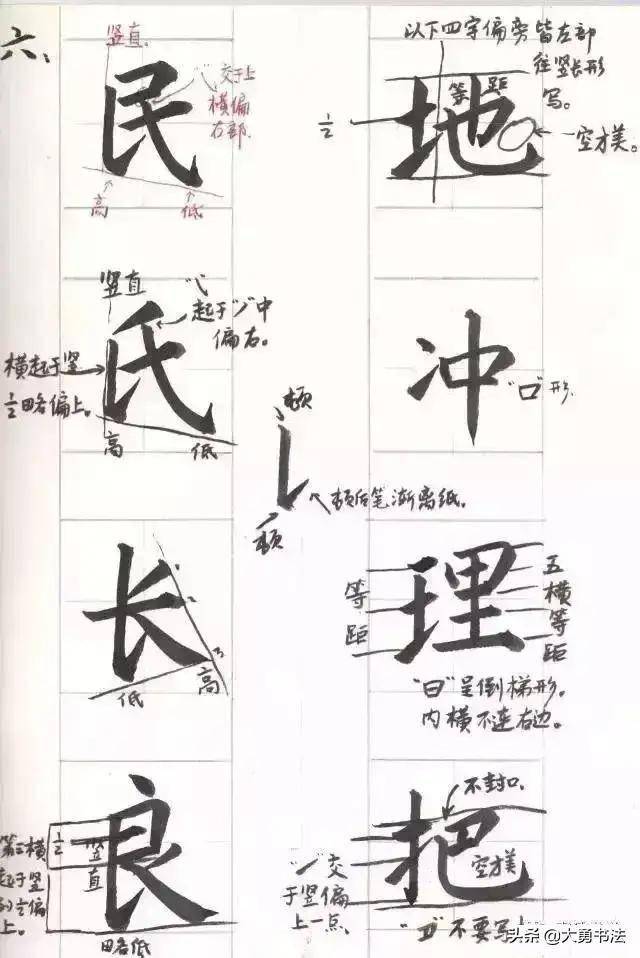 六、
竖直
民
"㇂"交于上
横偏
右部
高
低
以下四字偏旁皆左部
往竖长形
写。
地
等距
1/2
空才美。
竖直
"㇂"
起于"丿"中
偏右。
氏
横起于竖
1/2略偏上。
高
低
顿
顿后笔渐离纸。
顿
冲
"口"形
长
低
高
理
等
距
五
横
等
距
"日"呈倒梯形。
内横不连右边。
良
第三横
起于竖
1/2偏
上。
1/2
竖直
略低
把
不封口
空才美
"㇀"交
于竖偏
上一点
不要写
头条@大勇书法